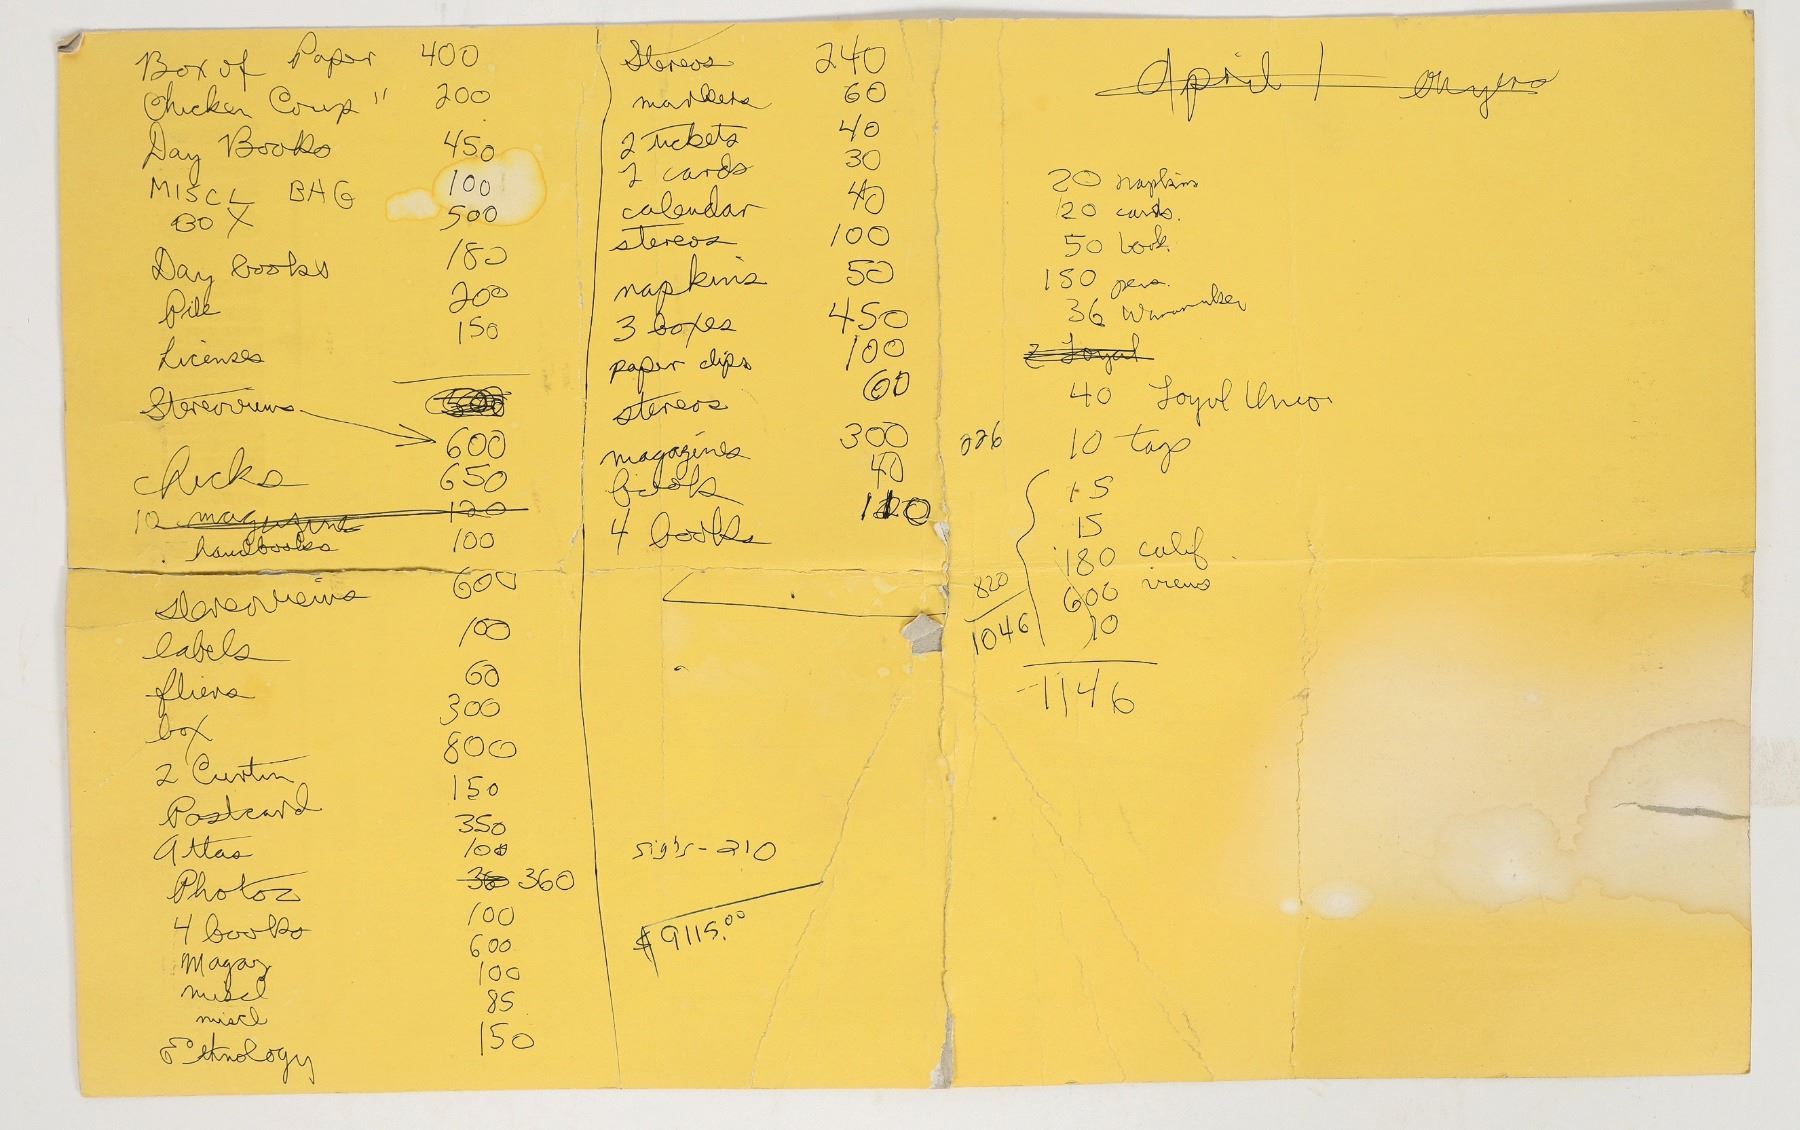 Box of Paper 400
Chicken Coup " 200
Day Books 450
MISCL BAG 100
BOX 500
Day books 180
Pile 200
Licenses 150
Stereoviews 600
Chicks 650
10 magazine 120
handbooks 100
stereoviews 600
labels 100
fliers 60
box 300
2 Curtin 800
Postcard 150
Attas 350
100
Photos 360
4 books 100
Magaz 600
miscl 100
miscl 85
Ethnology 150
Stereos 240
markers 60
2 tickets 40
2 cards 30
calendar 40
stereos 100
napkins 50
3 boxes 450
paper clips 100
stereos 60
magazines 300
book 40
4 books
sigs - 210
$9115.00
April 1
20 napkins
120 cards.
50 book.
150 pens.
36 Wanamaker
2 Loyal
40 Loyal Union
226
10 tags
15
15
180 calif
600 views
10
820
1046
1146